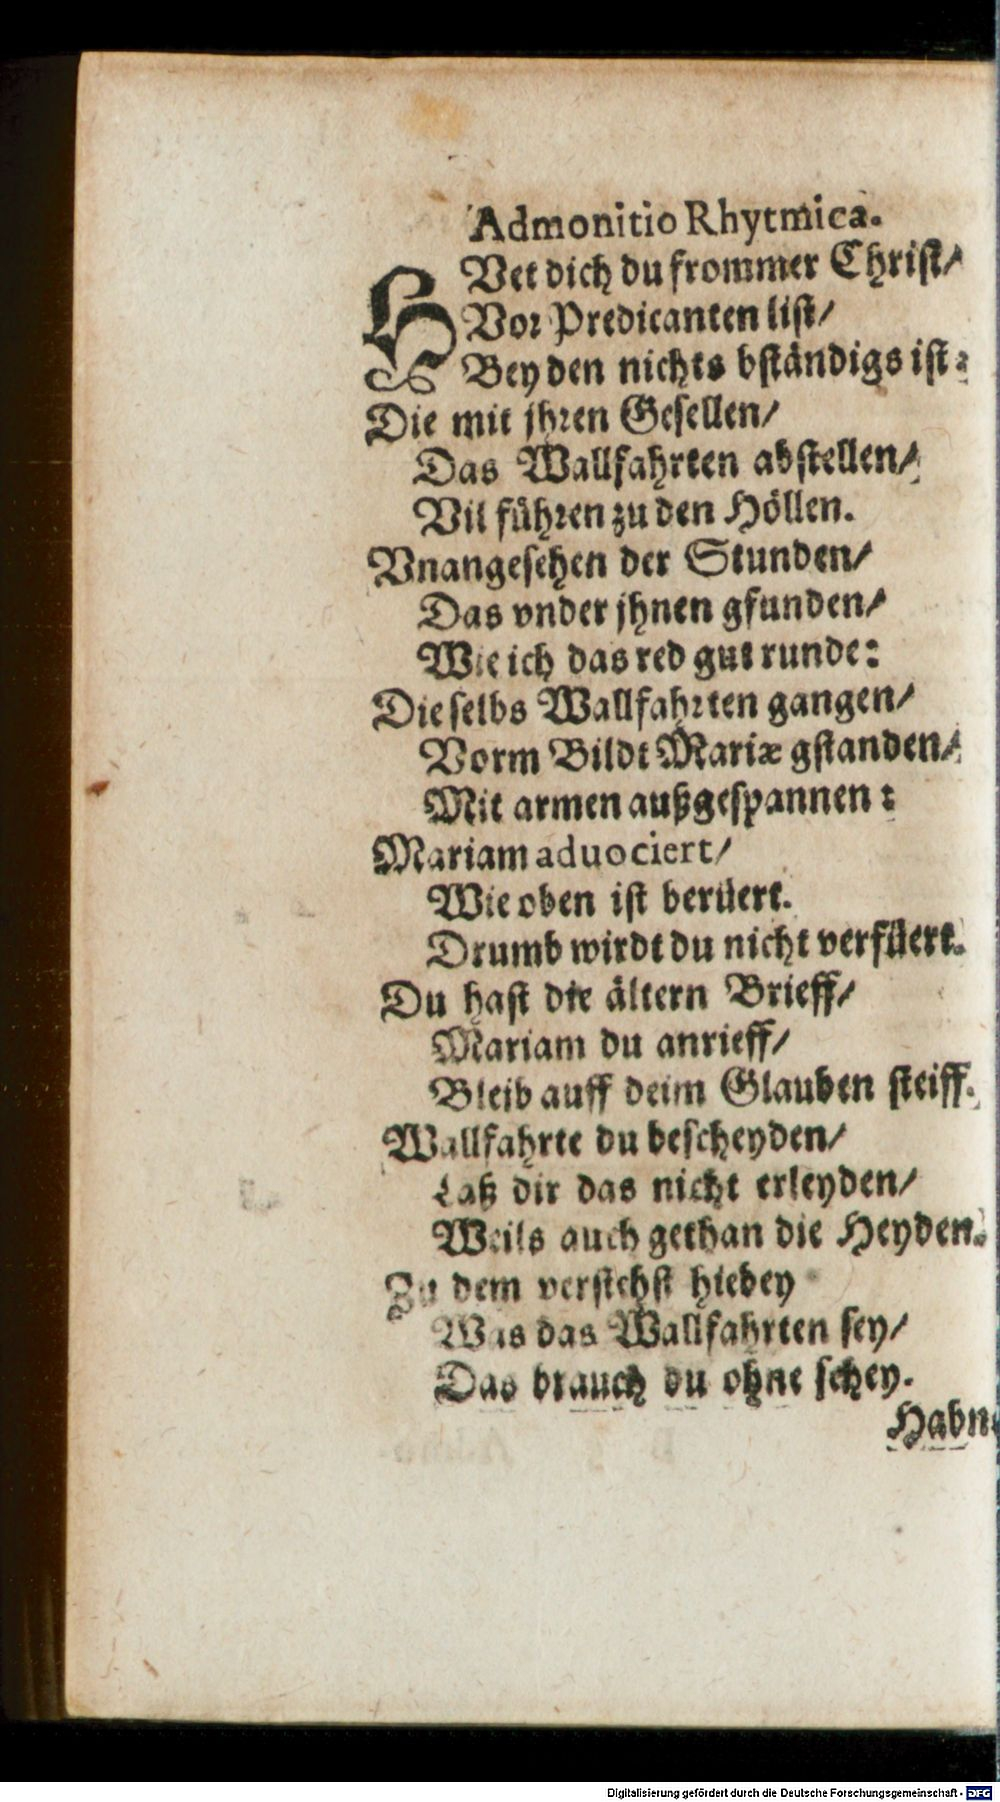 Admonitio Rhytmica.
HVet dich du frommer Christ/
Vor Predicanten list/
Bey den nichts bständigs ist:
Die mit jhren Gesellen/
Das Wallfahrten abstellen/
Vil führen zu den Höllen.
Vnangesehen der Stunden/
Das vnder jhnen gfunden/
Wie ich das red gut runde:
Die selbs Wallfahrten gangen/
Vorm Bildt Mariæ gstanden/
Mit armen außgespannen:
Mariam aduociert/
Wie oben ist berüert.
Drumb wirdt du nicht verfüert.
Du hast die ältern Brieff/
Mariam du anrieff/
Bleib auff deim Glauben steiff.
Wallfahrte du bescheyden/
Laß dir das nicht erleyden/
Weils auch gethan die Heyden.
Zu dem verstehst hiebey
Was das Wallfahrten sey/
Das brauch du ohne schey.
Habn
Digitalisierung gefördert durch die Deutsche Forschungsgemeinschaft - DFG